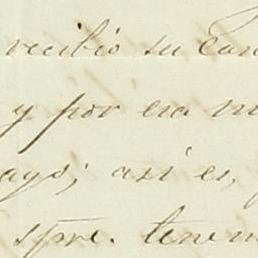 recibió su Car
y por esa m
ays; así es,
spre. tenem